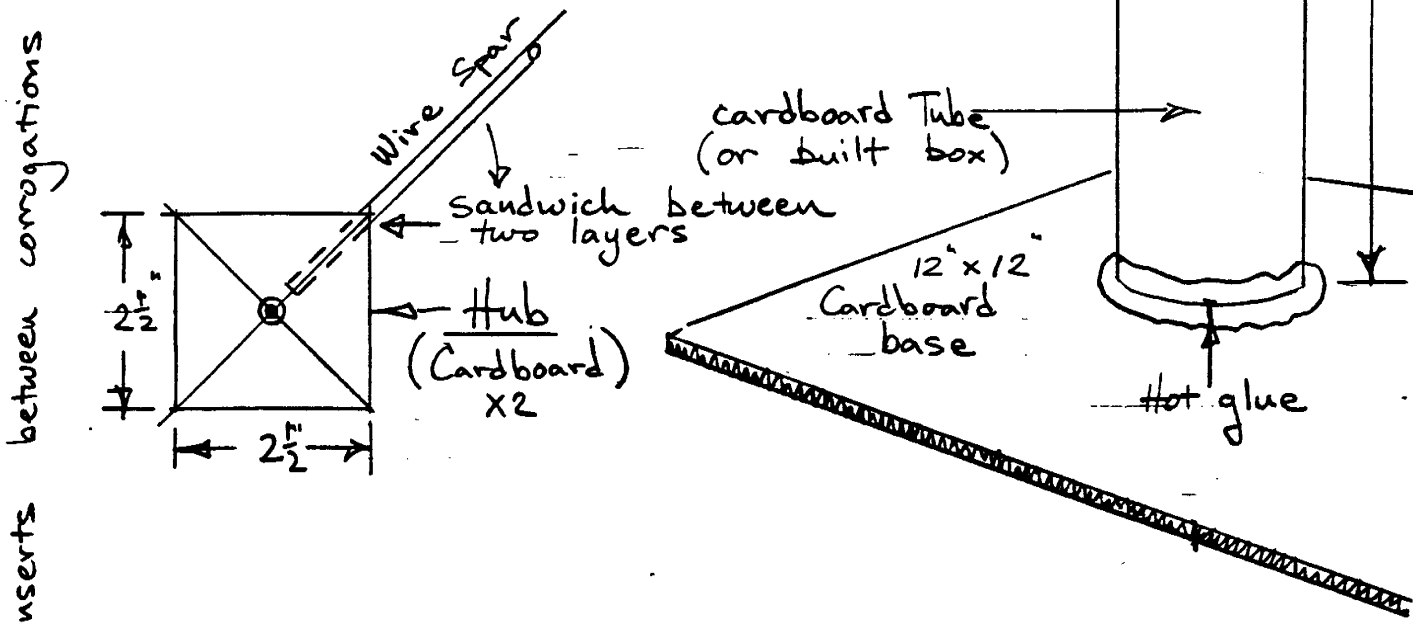 nserts between corrogations
Wire Spar
Sandwich between
two layers
2 1/2"
Hub
(Cardboard)
X2
2 1/2"
cardboard Tube
(or built box)
12" x 12"
Cardboard
base
Hot glue